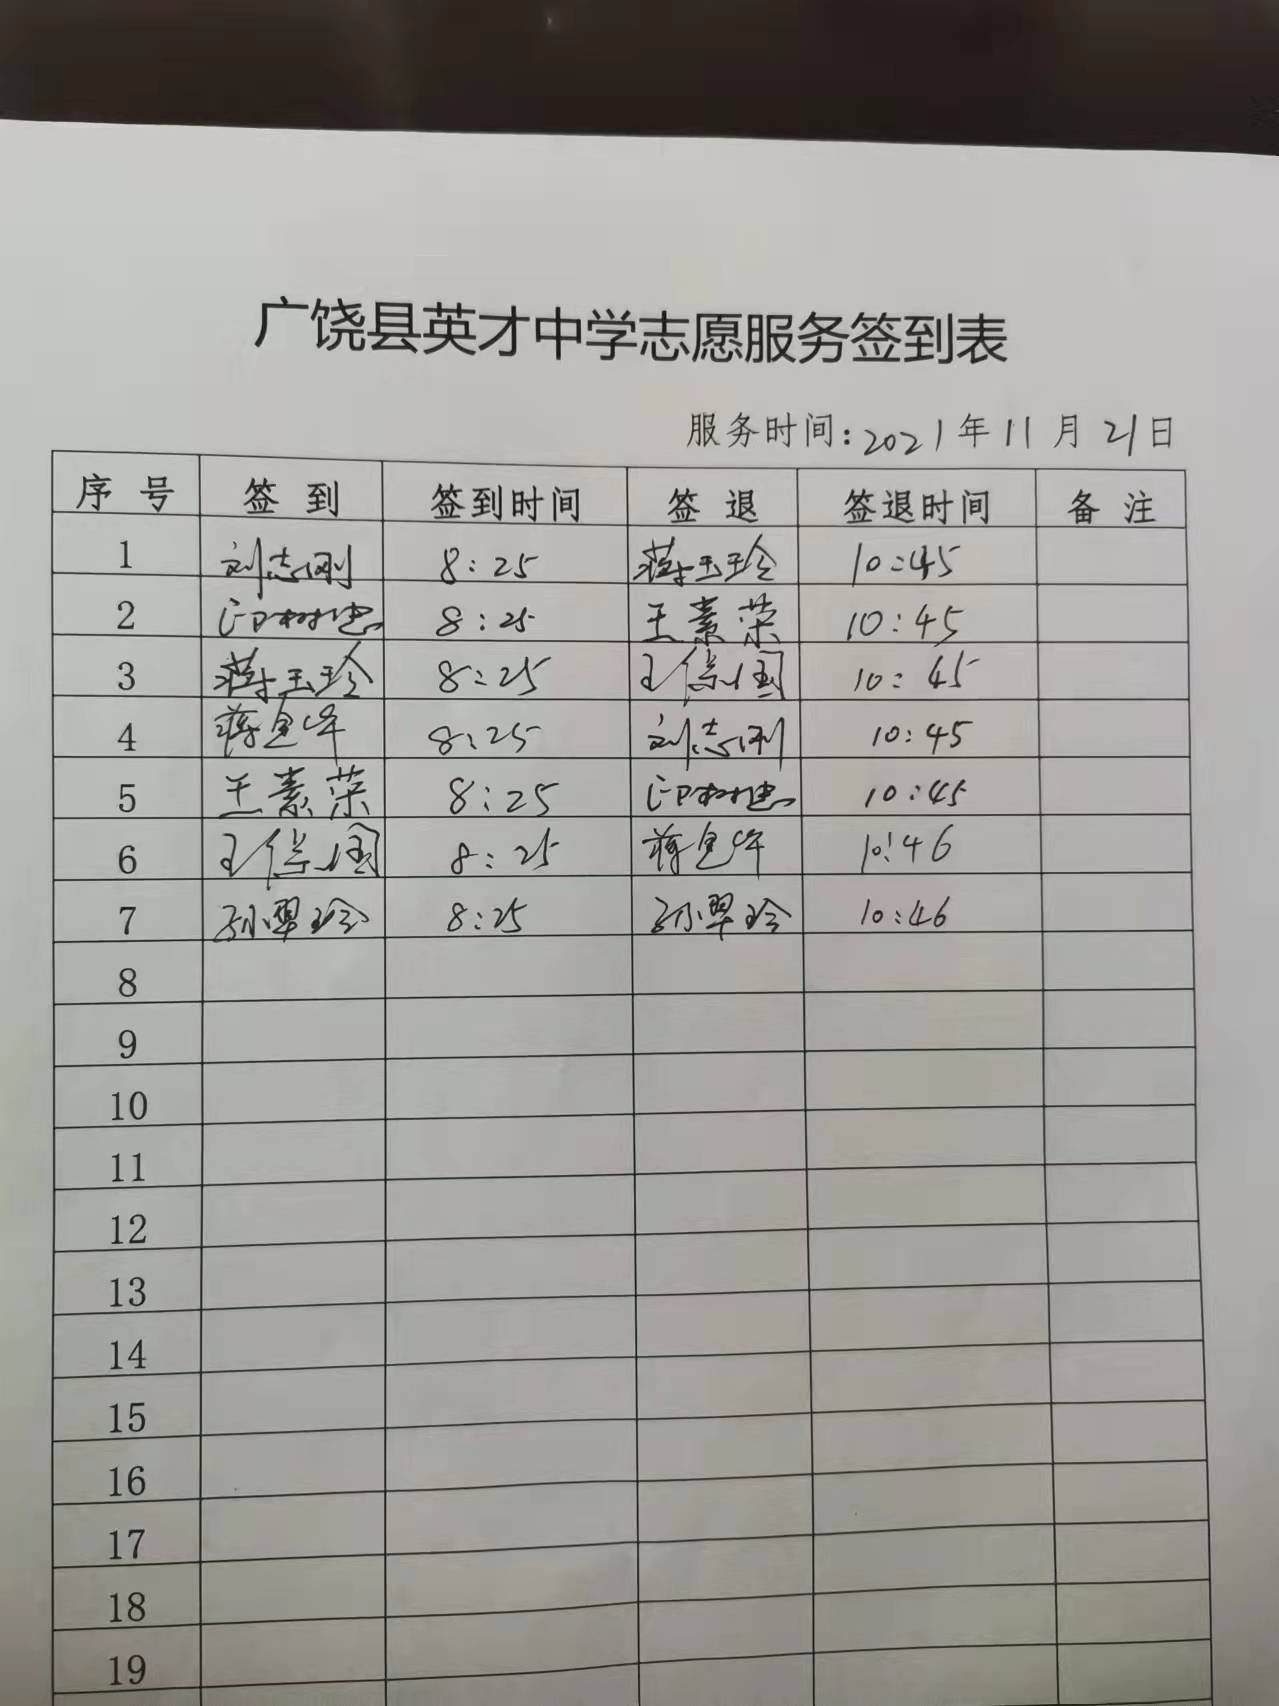 广饶县英才中学志愿服务签到表
服务时间:2021年11月21日
序号 签到 签到时间 签退 签退时间 备注
1 刘志刚 8:25 蒋玉珍 10:45
2 8:25 王素荣 10:45
3 蒋玉珍 8:25 10:45
4 8:25 刘志刚 10:45
5 王素荣 8:25 10:45
6 8:25 10:46
7 孙翠玲 8:25 孙翠玲 10:46
8
9
10
11
12
13
14
15
16
17
18
19